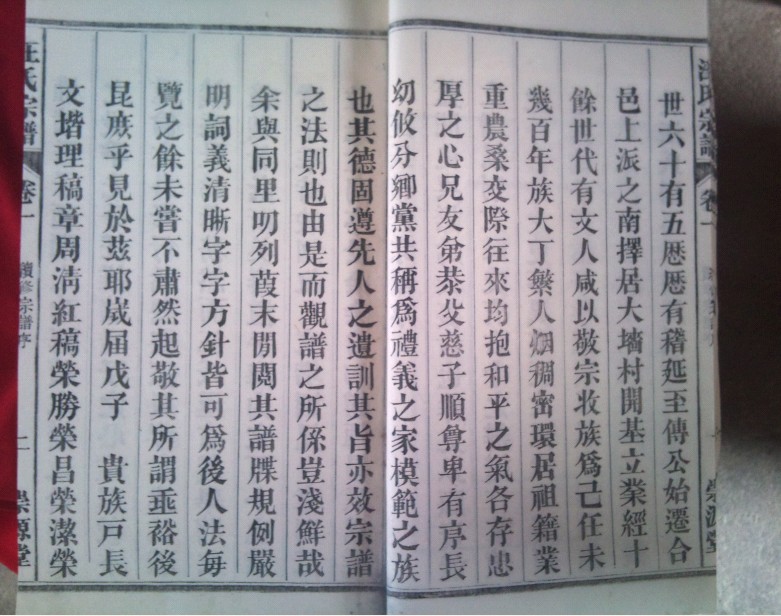 汪氏宗譜 卷一 崇源堂
世六十有五厯厯有稽延至傳公始遷合
邑上派之南擇居大墻村開基立業經十
餘世代有文人咸以敬宗收族爲己任未
幾百年族大丁繁人烟稠密環居祖籍業
重農桑交際往來均抱和平之氣各存忠
厚之心兄友弟恭父慈子順尊卑有序長
幼攸分鄉黨共稱爲禮義之家模範之族
也其德固遵先人之遺訓其旨亦效宗譜
之法則也由是而觀譜之所係豈淺鮮哉
余與同里叨列葭末閒閱其譜牒規例嚴
明詞義清晰字字方針皆可爲後人法每
覽之餘未嘗不肅然起敬其所謂垂裕後
昆庶乎見於茲耶歲屆戊子 貴族戸長
文堦理稿章周淸紅稿榮勝榮昌榮潔榮
汪氏宗譜 卷一 續修宗譜序 二 崇源堂